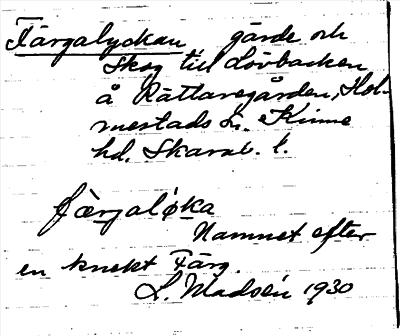 Färgalyckan gärde och
skog till Lövbacken
å Rättaregården, Hol-
mestads sn. Kinne
hd. Skarab. l.
fæ̀rgalø̨ka
Namnet efter
en knekt Färg.
L. Madsén 1930